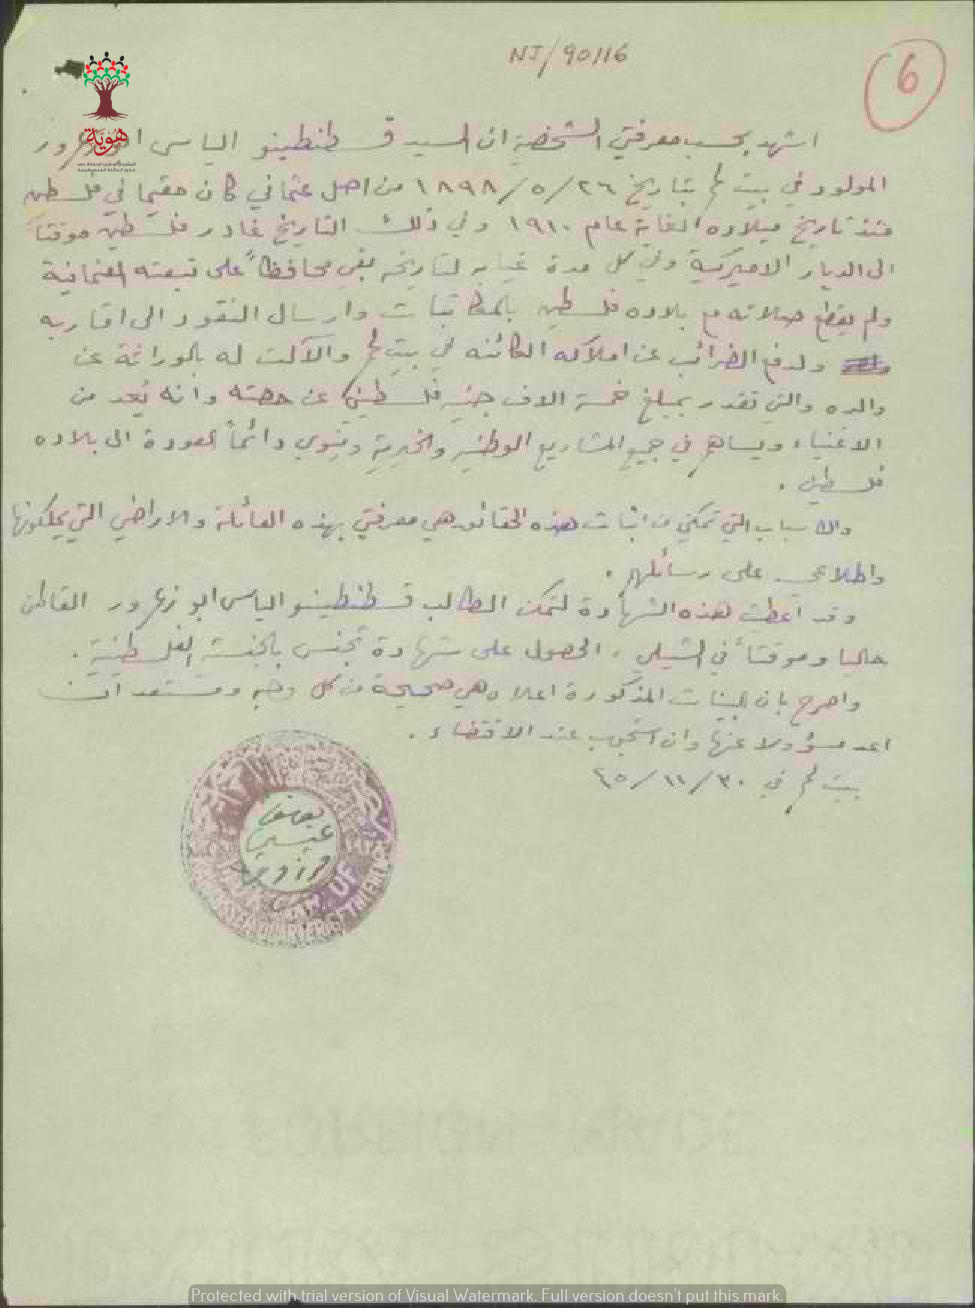 NJ/90116
6
هوية
اشهد بحسب معرفتي الشخصية ان السيد قسطنطينو الياس ابو زعرور
المولود في بيت لحم بتاريخ ٢٦/٥/١٨٩٨ من اصل عثماني كان مقيما في فلسطين
منذ تاريخ ميلاده الغاية عام ١٩١٠ وفي ذلك التاريخ غادر فلسطين موقتاً
الى الديار الاميركية وفي كل مدة غيابه لتاريخه بقي محافظاً على تبعته العثمانية
ولم يقطع صلاته مع بلاده فلسطين بالمكاتبات وارسال النقود الى اقاربه
ولدفع الضرائب عن املاكه الكائنه في بيت لحم والآلت له بالوراثة عن
والده والتي تقدر بمبلغ خمسة الاف جنيه فلسطيني عن حصته وانه يُعد من
الاغنياء ويساهم في جميع المشاريع الوطنية والخيرية وينوي دائماً العودة الى بلاده
فلسطين .
والاسباب التي تمكني من اثبات هذه الحقائق هي معرفتي بهذه العائلة والاراضي التي يملكونها
واطلاعي على رسائلهم .
وقد اعطيت هذه الشهادة لتمكن الطالب قسطنطينو الياس ابو زعرور القاطن
حاليا وموقتاً في التشيلي ، الحصول على شهادة تجنس بالجنسية الفلسطينية .
واصرح بان البينات المذكورة اعلاه هي صحيحة من كل وجه ومستعد ان
اعد مسؤولا عنها وان استجوب عند الاقتضاء .
بيت لحم في ٣٠/١١/٤٥
عيسى
OF
QUARTER
Protected with trial version of Visual Watermark. Full version doesn't put this mark.